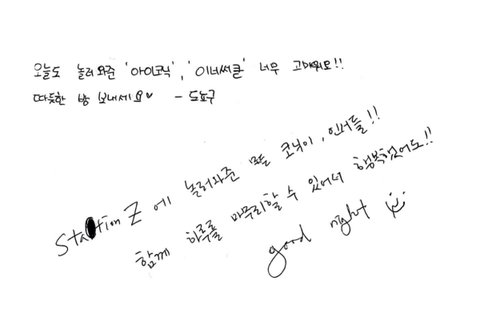 오늘도 놀러와준 '아이코닉', '이너써클' 너무 고마워요!!
따듯한 밤 보내세요♥ - 도요구
Station Z 에 놀러와준 모든 코닉이, 인써들!!
함께 하루를 마무리할 수 있어서 행복했어도!!
good night